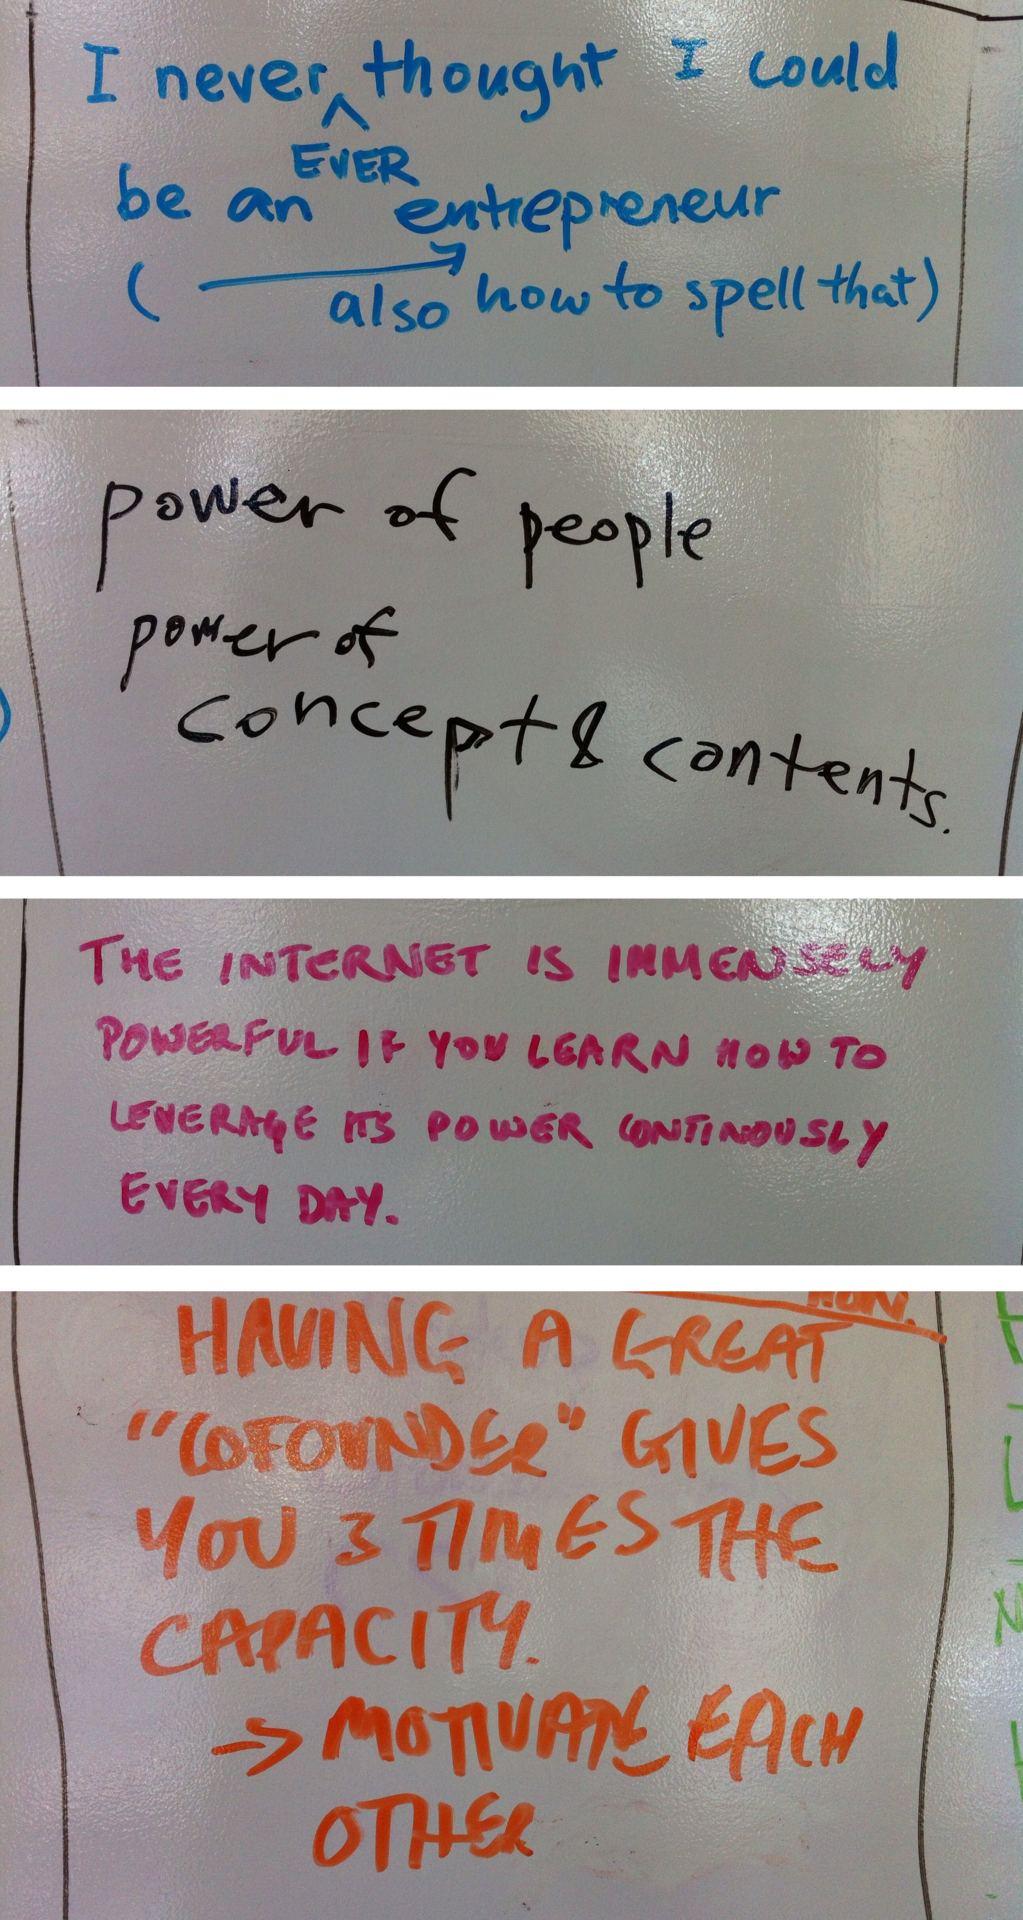 I never thought I could
^
EVER
be an entrepreneur
( → also how to spell that)
power of people
power of
concept & contents.
THE INTERNET IS IMMENSELY
POWERFUL IF YOU LEARN HOW TO
LEVERAGE ITS POWER CONTINOUSLY
EVERY DAY.
HAVING A GREAT
"COFOUNDER" GIVES
YOU 3 TIMES THE
CAPACITY.
→ MOTIVATE EACH
OTHER